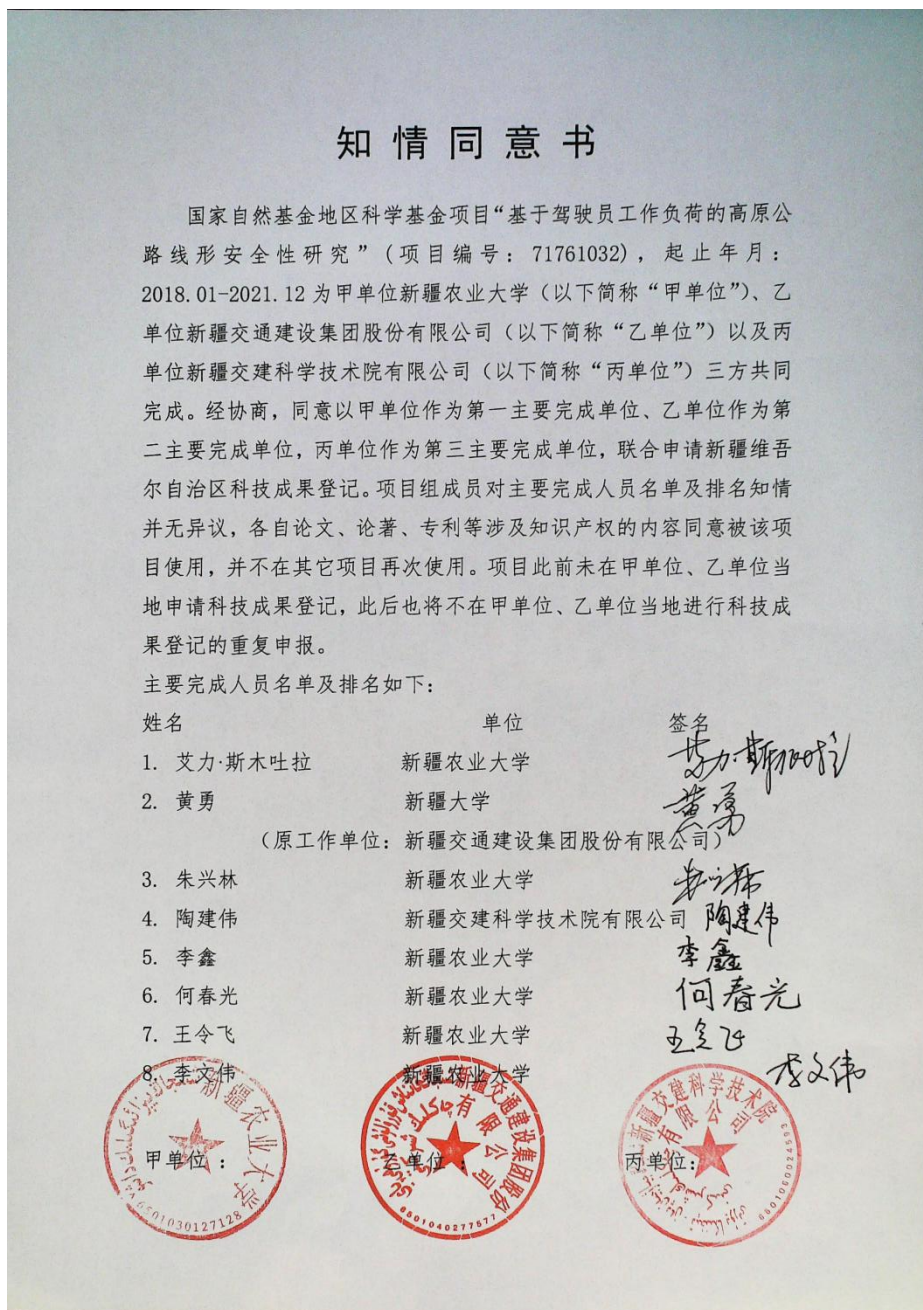 知情同意书
国家自然基金地区科学基金项目“基于驾驶员工作负荷的高原公
路线形安全性研究”(项目编号: 71761032), 起止年月:
2018.01-2021.12 为甲单位新疆农业大学（以下简称“甲单位”）、乙
单位新疆交通建设集团股份有限公司（以下简称“乙单位”）以及丙
单位新疆交建科学技术院有限公司（以下简称“丙单位”）三方共同
完成。经协商，同意以甲单位作为第一主要完成单位、乙单位作为第
二主要完成单位，丙单位作为第三主要完成单位，联合申请新疆维吾
尔自治区科技成果登记。项目组成员对主要完成人员名单及排名知情
并无异议，各自论文、论著、专利等涉及知识产权的内容同意被该项
目使用，并不在其它项目再次使用。项目此前未在甲单位、乙单位当
地申请科技成果登记，此后也将不在甲单位、乙单位当地进行科技成
果登记的重复申报。
主要完成人员名单及排名如下：
姓名 单位 签名
1. 艾力·斯木吐拉 新疆农业大学 艾力·斯木吐拉
2. 黄勇 新疆大学 黄勇
（原工作单位：新疆交通建设集团股份有限公司）
3. 朱兴林 新疆农业大学 朱兴林
4. 陶建伟 新疆交建科学技术院有限公司 陶建伟
5. 李鑫 新疆农业大学 李鑫
6. 何春光 新疆农业大学 何春光
7. 王令飞 新疆农业大学 王令飞
8. 李文伟 新疆农业大学 李文伟
甲单位： 乙单位： 丙单位：
新疆农业大学
6501030127128
新疆交通建设集团股份
有限公司
6501040277577
新疆交建科学技术院
有限公司